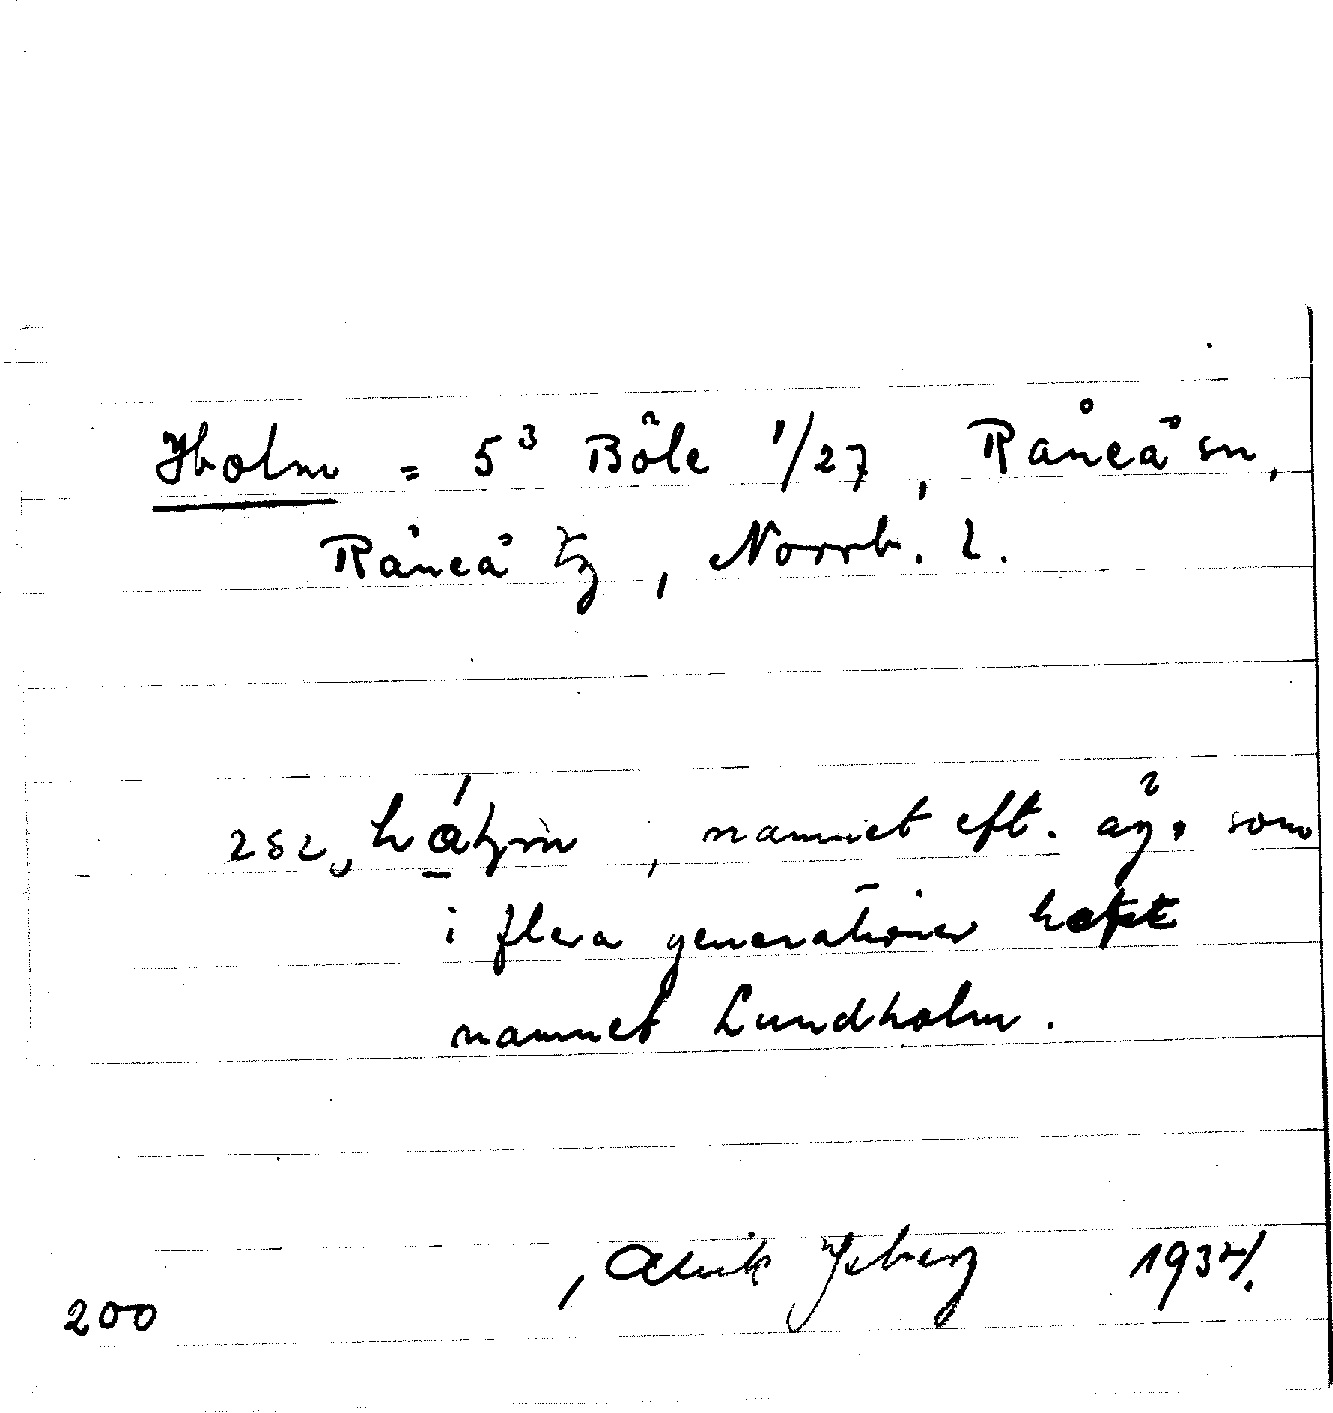 Holm = 5³ Böle 1/27, Råneå sn,
Råneå tg, Norrb. l.
namnet eft. äg. som
i flera generationer hetat
namnet Lundholm.
200 1934.